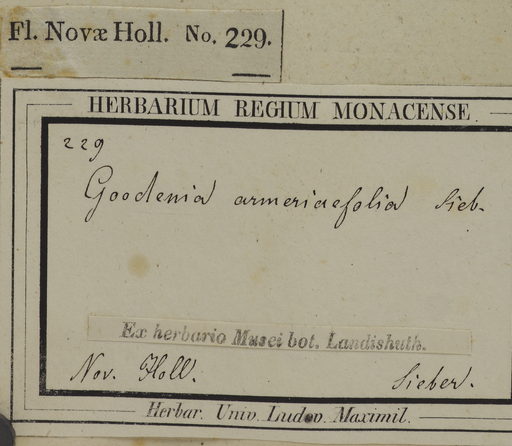 Fl. Novæ Holl. No. 229.
HERBARIUM REGIUM MONACENSE
229
Goodenia armeriaefolia Sieb.
Ex herbario Musei bot. Landishuth.
Nov. Holl. Sieber.
Herbar. Univ. Ludov. Maximil.